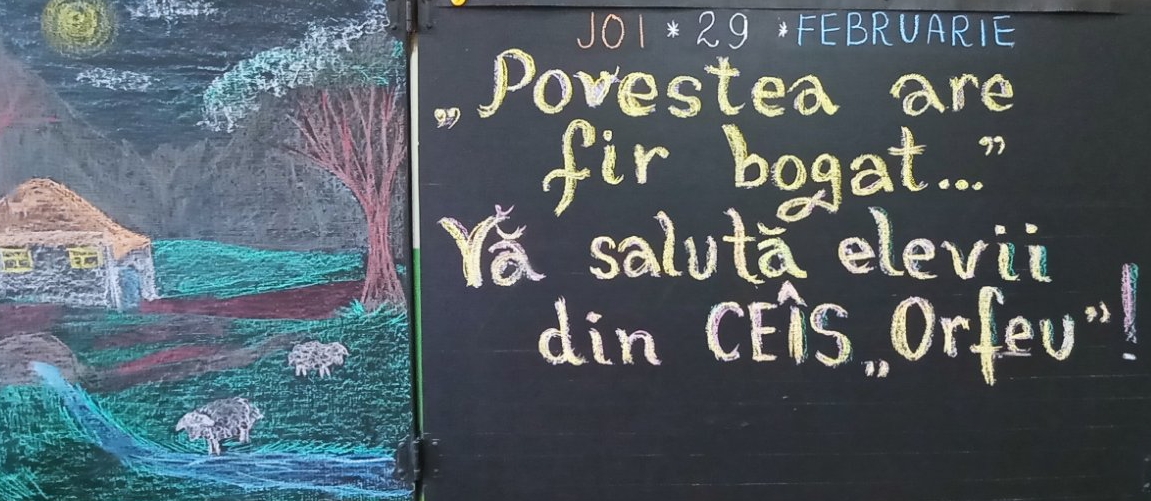 JOI * 29 * FEBRUARIE
„Povestea are
fir bogat...”
Vă salută elevii
din CEÎS „Orfeu”!